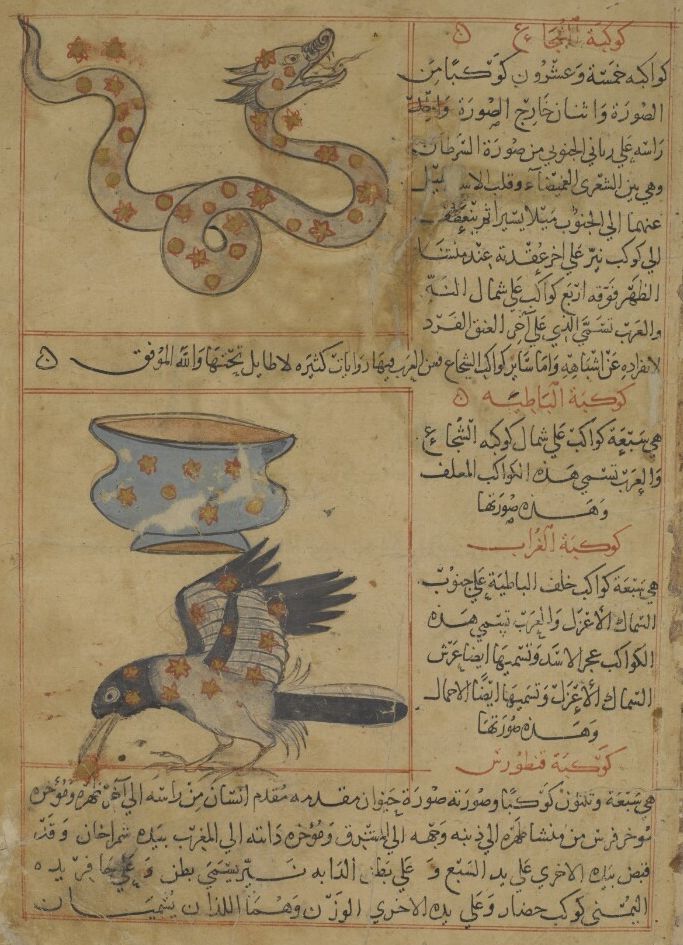 كوكبة الشجاع
كواكبه خمسة وعشرون كوكبًا من
الصورة واثنان خارج الصورة
راسه علي زباني الجنوبي من صورة السرطان
وهي بين الشعري الغميضاء وقلب الاسد يميل
عنهما الي الجنوب ميلا يسيرا ثم ينعطف
الي كوكب نير علي اخر عقدته عند منشا
الظهر فوقه اربع كواكب علي شمال النير
والعرب تسمي الذي علي آخر العنق الفرد
لانفراده عن اشباهه واما سائر كواكب الشجاع فمن العرب فيها روايات كثيره لا طايل تحتها والله الموفق
كوكبة الباطية
هي سبعة كواكب علي شمال كوكبه الشجاع
والعرب تسمي هذه الكواكب المعلف
وهذه صورتها
كوكبة الغراب
هي سبعة كواكب خلف الباطية علي جنوب
السماك الأعزل والعرب تسمي هذه
الكواكب عجز الاسد وتسميها ايضا عرش
السماك الأعزل وتسميها ايضًا الاحمال
وهذه صورتها
كوكبة قنطورس
هي سبعة وثلثون كوكبًا وصورته صورة حيوان مقدمه مقدم انسان من راسه الي آخر ظهره ومؤخره
مؤخر فرس من منشا ظهره الي ذنبه وجهه الي المشرق ومؤخره دابته الي المغرب بيده شمراخان وقد
قبض بيده الاخري علي يد السبع وعلي بطن الدابه نير يسمي بطن وعلي حافر يده
اليمني كوكب حضار وعلي يده الاخري الوزن وهما اللذان يسميان